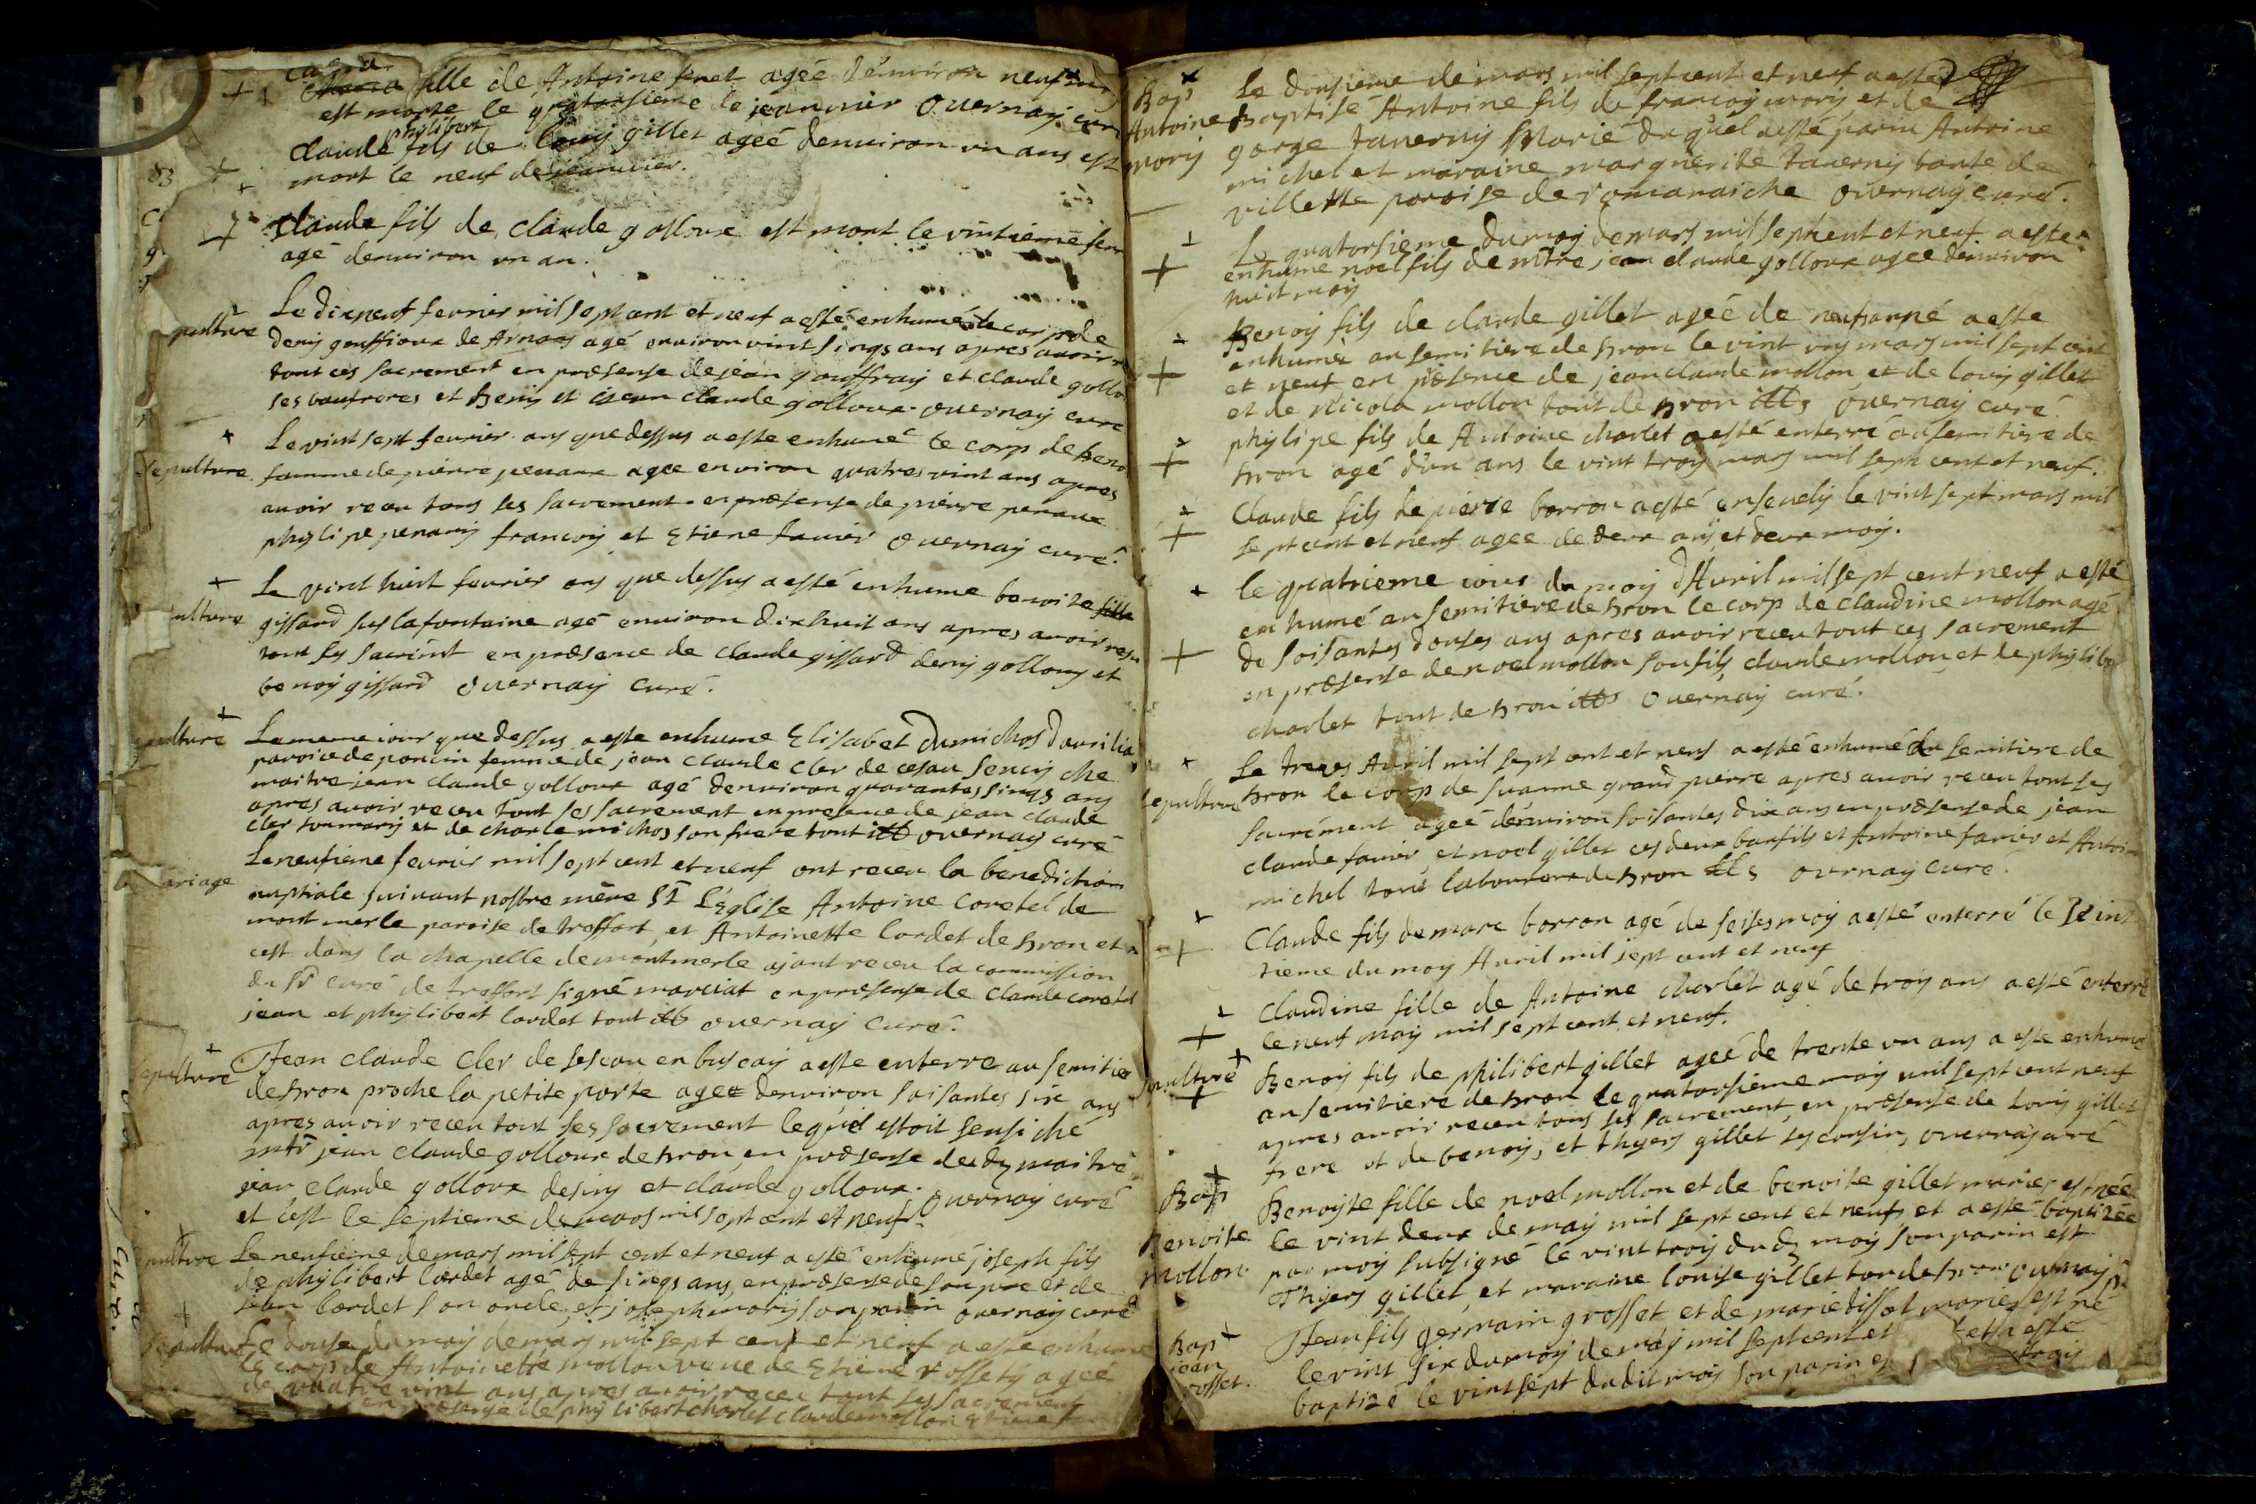 fille de Antoine agée d'enuiron neuf
est morte le quatorsieme de jeanuier ouernay curé
philibert
claude fils de louis gillet ageé denuiron vn ans est
mort le neuf de jeanuier.
claude fils de claude golloux est mort le vintieme feu
agé denuiron vn an.
Le dixneuf feurier mil sept cent et neuf a esté enhumé le corp de
denis gouffioux de agé enuiron vint sinqs ans apres auoir
tout ces sacrement en præsense de jean gouffray et claude gollo
ses baufreres et Benis et claude golloux. ouernay curé
sepulture
Le vint sept feurier ans que dessus a esté enhumé le corp de beno
famme de pierre penaux agee enuiron quatres vint ans apres
auoir receu tous ses sacrement en præsense de pierre penaux
phylipe penaux francois et Etiene fauier ouernay curé.
ulture
Le vint huit feurier ans que dessus a esté enhume benoite fille
gissard sus la fontaine agé enuiron dix huit ans apres auoir receu
tout ses sacremt en præsence de claude gissard denis golloux et
benoy gissard ouernay curé.
pulture
Le meme iour que dessus a este enhume Elisabet dumichos
paroice de poncin femme de jean claude cler de cesau
maitre jean claude golloux agé denuiron quarantes sinqs ans
apres auoir receu tout ses sacrement en presence de jean claude
cler son mary et de charle michos son frere tout ouernay curé
ariage
Le neufieme feurier mil sept cent et neuf ont receu la benediction
nuptiale suiuant nostre mère St L'Eglise Antoine coretel de
mont merle paroise de treffort, et Antoinette lordet de Bron et
cest dans la chapelle de montmerle ajant receu la commission
du Sr curé de treffort signé maruiat en præsense de claude coretel
jean et phylibert lordet tout ouernay curé.
sepulture
Jean claude cler de sescau en bugay a este enterre au semitier
de Bron proche la petite porte agee denuiron soisantes six ans
apres auoir receu tout ses sacrement lequel estoit
mtr jean claude golloux de Bron, en præsense dud maitre
jean claude golloux et claude golloux. ouernay curé
et c'est le septieme de mars mil sept cent et neuf.
pulture
Le neufieme de mars mil sept cent et neuf a esté enhumé joseph fils
de phylibert lordet agé de sinqs ans, en præsense de son pere et de
jean lordet son oncle, et joseph moris son parin ouernay curé
sepulture
Le douse du mois de mars mil sept cent et neuf a este enhume
le corp de Antoinette mollon veue de Etiene rossety ageé
de quatre vint ans apres auoir receu tout ses sacrement
en præsense de phylibert charlet claude mollon Etiene
Bap
Antoine
moris
Le dousieme de mars mil sept cent et neuf a esté
Baptisé Antoine fils de francois moris et de
gorge tauernis Marié duquel a esté parin Antoine
michel et maraine marguerite tauernis tante de
villette paroise de romanaiche ouernay curé.
Le quatorsieme du moy de mars mil sept cent et neuf a este
enhume noel fils de mtre jean claude golloux agee denuiron
huit moy
Benoy fils de claude gillet ageé de neuf anné a este
enhumé au semitiere de Bron le vint vny mars mil sept cent
et neuf en præsence de jean claude mollon, et de louis gillet
et de Nicola mollon tout de Bron ouernay curé.
phylipe fils de Antoine charlet a esté enterré au semitiere de
Bron agé d'un ans le vint trois mars mil sept cent et neuf.
Claude fils de pierre borron a esté enseuely le vint sept mars mil
sept cent et neuf agee de deux ans et deux moy.
le quatrieme iour du moy d'Auril mil sept cent neuf a esté
enhumé au semitiere de Bron le corp de claudine mollon agé
de soisantes douses ans apres auoir receu tout ces sacrement
en præsense de noel mollon son fils, claude mollon, et de phylibe
charlet tout de Bron ouernay curé.
sepulture
Le treses Auril mil sept cent et neuf a esté enhumé du semitiere de
Bron le corp de suanne grand pierre apres auoir receu tout ses
sacrément ageé denuiron soisantes dix ans en præsense de jean
claude fauier et noel gillet ces deux baufils et Antoine fauier et Antoi
michel tous laboureurs de Bron ouernay curé.
Claude fils de marc borron agé de seises moy a esté enterré le vint
tieme du moy Auril mil sept cent et neuf
Claudine fille de Antoine charlet agé de trois ans a esté enterré
le neuf may mil sept cent et neuf.
pulture
Benoy fils de philibert gillet ageé de trente vn ans a este enhumé
au semitiere de Bron le quatorsieme may mil sept cent neuf
apres auoir receu tous ses sacrement, en præsense de louis gillet
frere et de benoy, et thyers gillet ses cousin, ouernay curé
Bap
Benoite
mollon
Benoyte fille de noel mollon et de benoite gillet mariés est née
le vint deux de may mil sept cent et neuf, et a esté baptizée
par moy subsigné le vint trois dud moy son parin est
Thyers gillet, et maraine louise gillet tou de Bron ouernay
Bap
jean
rosset.
Jean fils germain grosset et de marie dissot mariés est né
le vint six du moy de may mil sept cent et et a esté
baptizé le vint sept dudit mois son parin